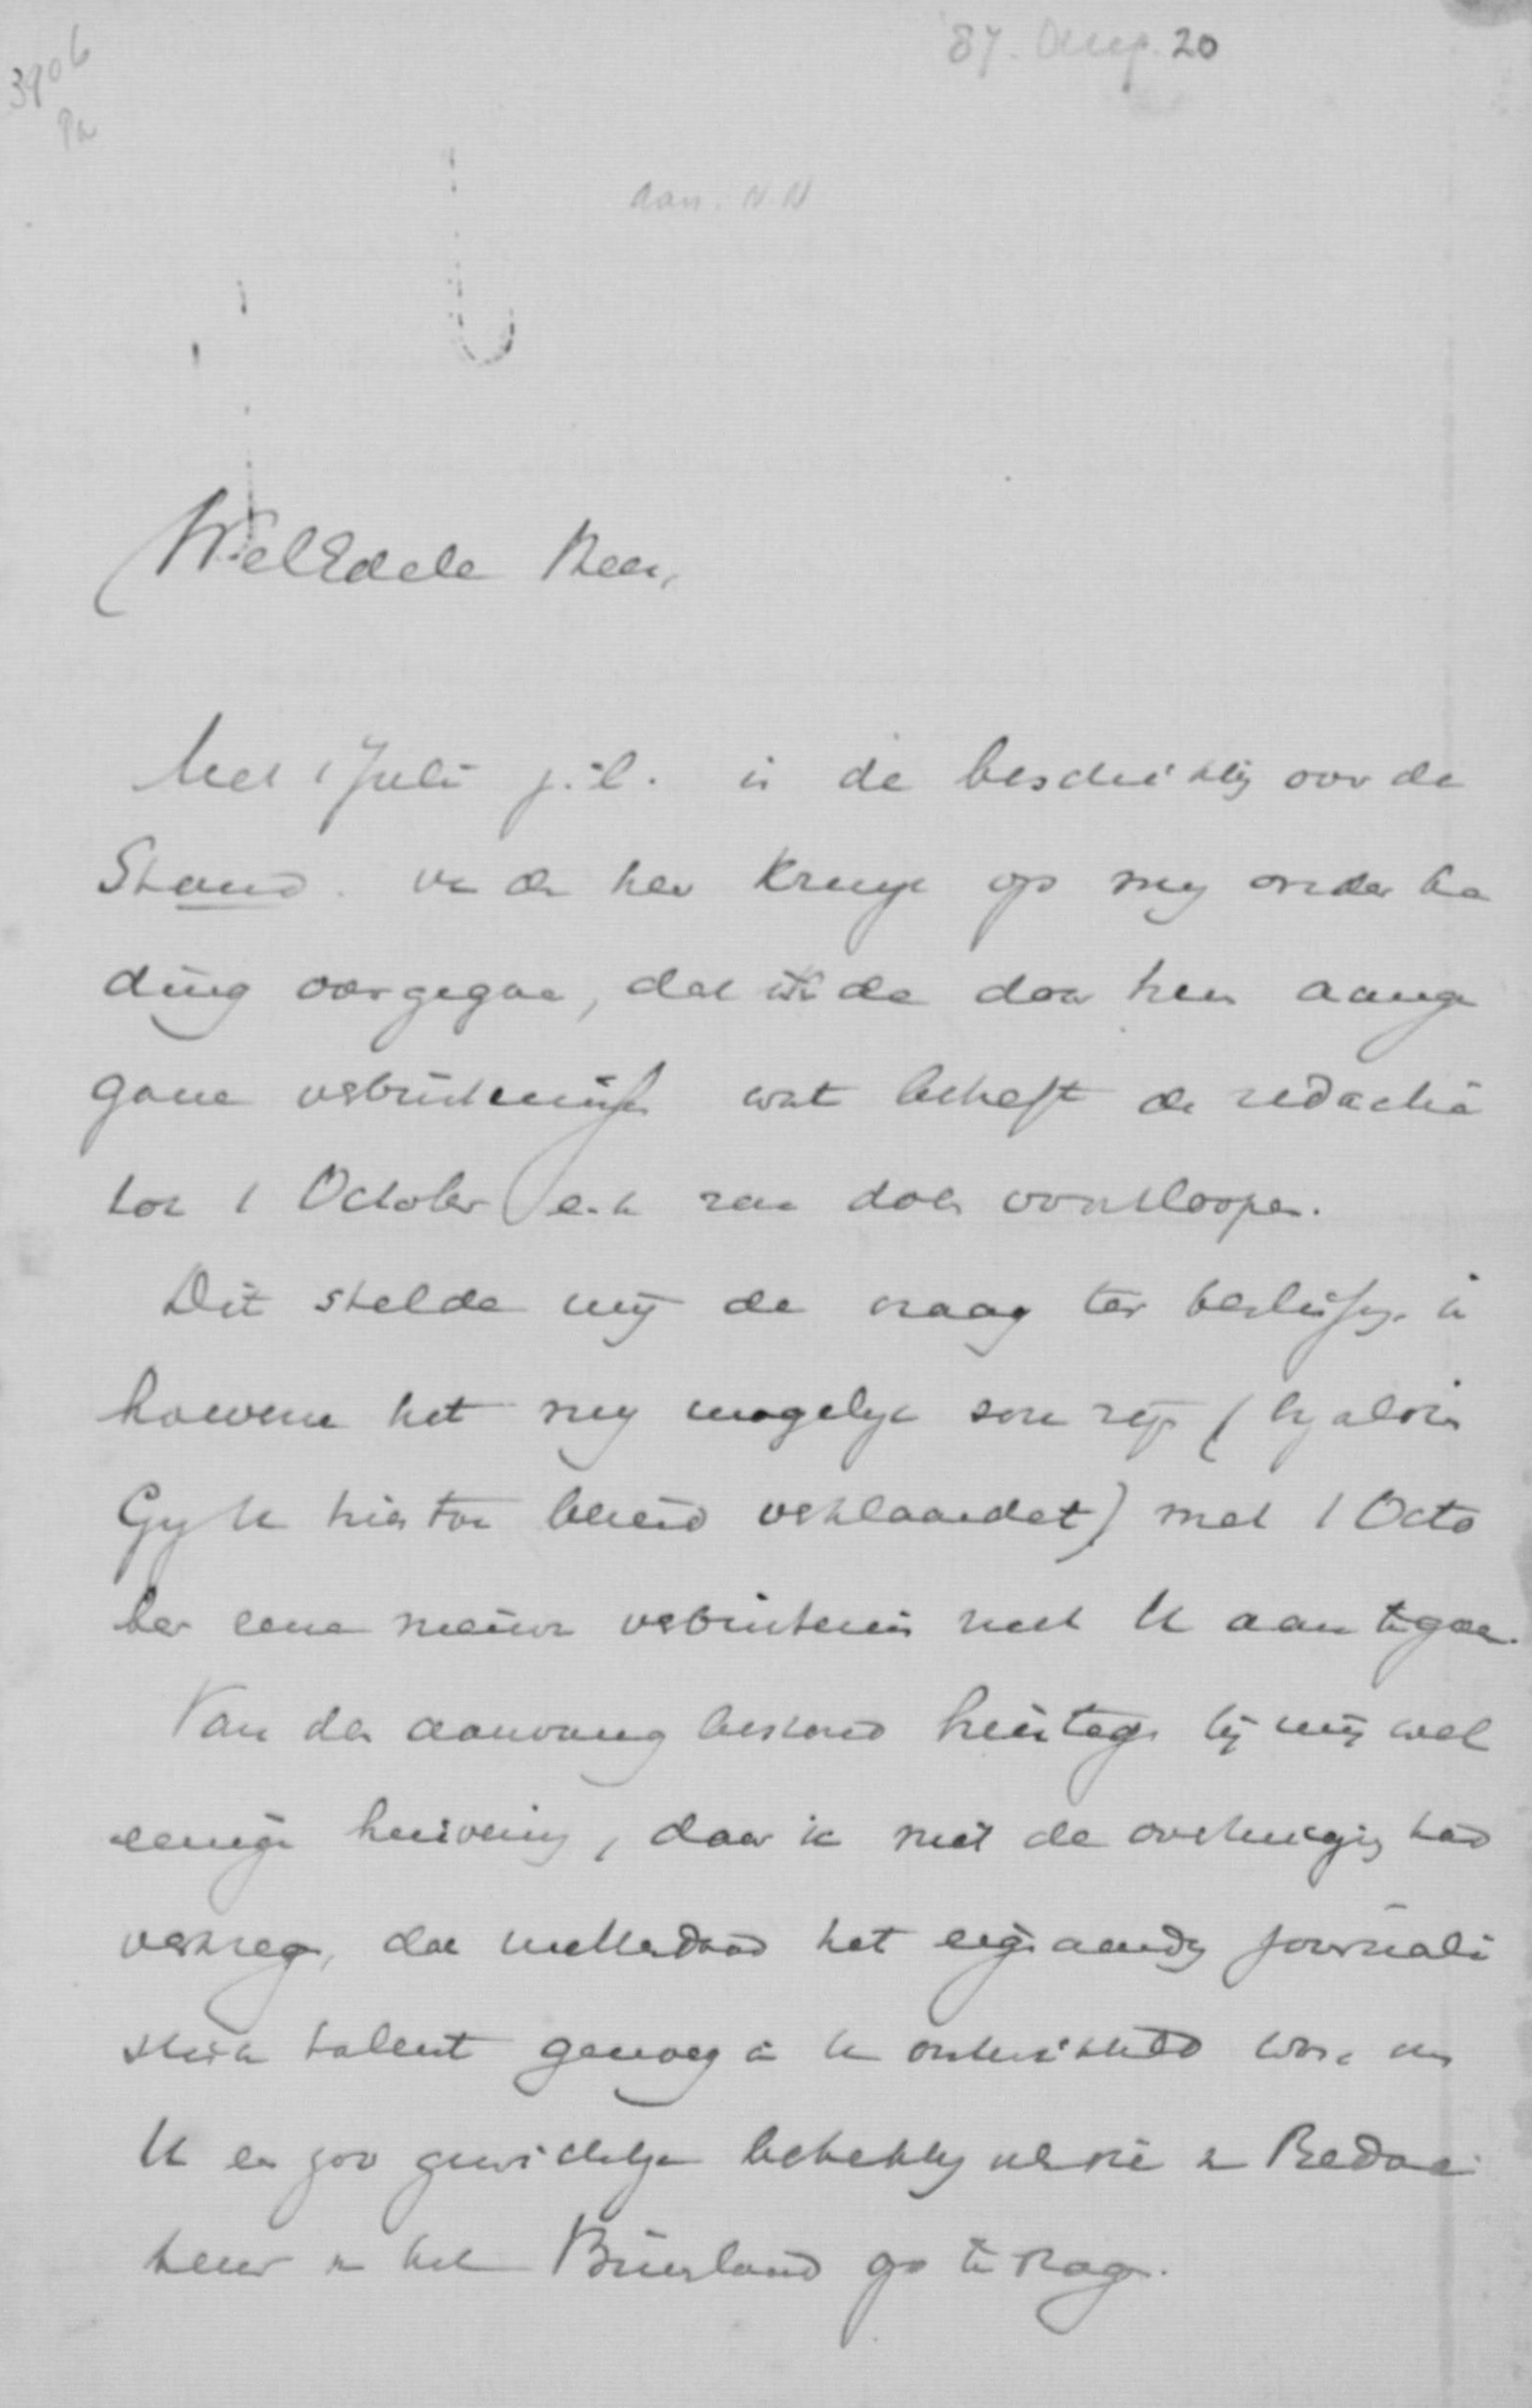 3906
87. Aug. 20
Aan. N.N
WelEdele Heer,
Met 1 Juli j.l. is de beschikking over de
Stand. van den heer Kruyt op mij onder be
ding overgegaan, dat de door hem aange
gane verbintenissen wat betreft de redactie
tot 1 October e.k. zou doen voortloopen.
Dit stelde mij de vraag ter beslissing, in
hoeverre het mij mogelijk zou zijn (bijaldien
Gij U hiertoe bereid verklaardet) met 1 Octo
ber eene nieuwe verbintenis met U aan te gaan.
Van den aanvang bestond hiertegen bij mij wel
eenige huivering, daar ik niet de overtuiging had
verkregen, dat metterdaad het eigenaardig journali
stiek talent genoeg in U ontwikkeld was, om
U een zoo gewichtige betrekking als die van Redac
teur van het Binnenland op te dragen.